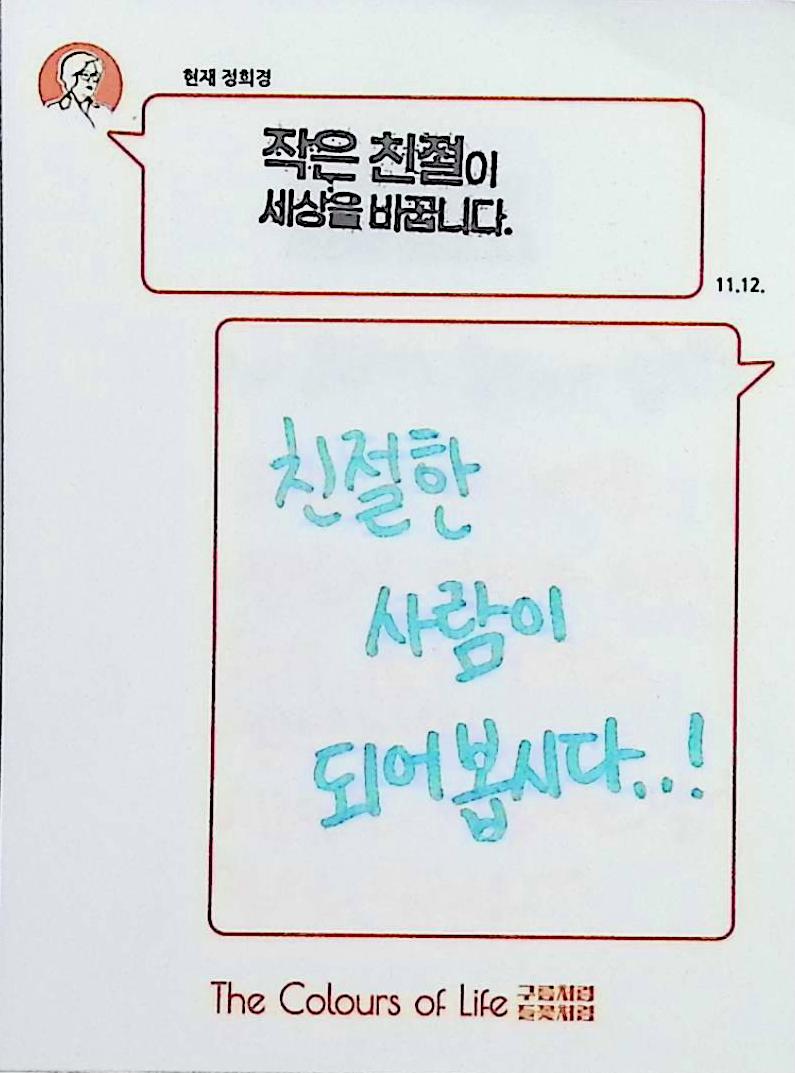 현재 정희경
작은 친절이
세상을 바꿉니다.
11.12.
친절한
사람이
되어봅시다..!
The Colours of Life 구름처럼
들꽃처럼